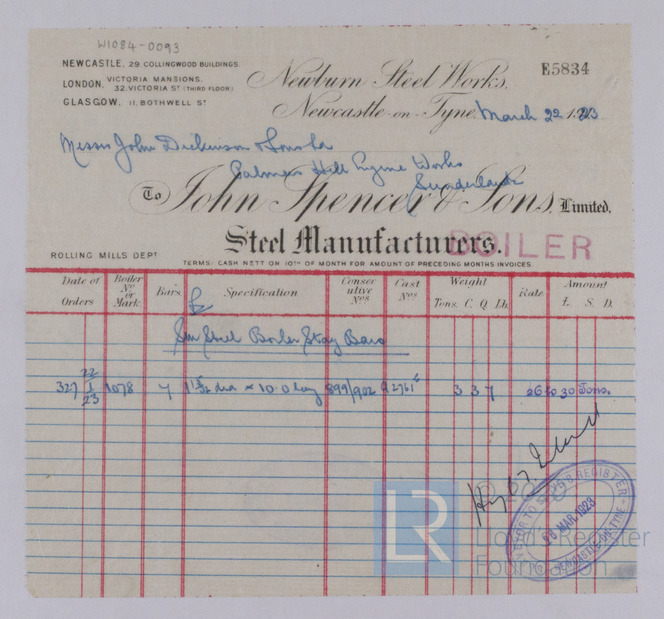 W1084-0093
NEWCASTLE, 29 COLLINGWOOD BUILDINGS.
LONDON, VICTORIA MANSIONS. 32, VICTORIA ST (THIRD FLOOR)
GLASGOW, 11, BOTHWELL ST
Newburn Steel Works,
E5834
Newcastle-on-Tyne, March 22 1923
Messrs John Dickinson & Sons Ld
Palmers Hill Engine Works
Sunderland
To John Spencer & Sons, Limited.
Steel Manufacturers.
BOILER
ROLLING MILLS DEPT
TERMS: CASH NETT ON 10TH OF MONTH FOR AMOUNT OF PRECEDING MONTHS INVOICES.
Date of Orders Boiler No or Mark. Bars Specification Consecutive Nos Cast Nos Weight Tons. C. Q. Lb. Rate Amount £. S. D.
Steel Boiler Stay Bars
327 22/1/23 1078 dia × 10.0 long 899/902 3 3 7 26 to 30 Tons.
28 MAR 1923
NEWCASTLE-ON-TYNE
LR
Lloyd's Register
Foundation